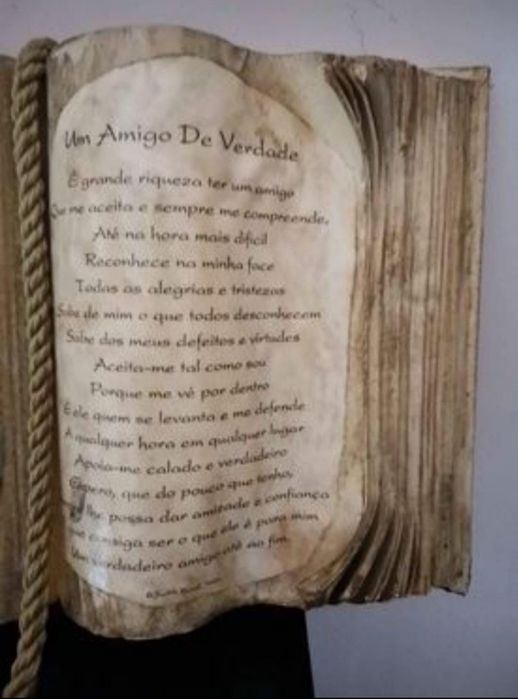 Um Amigo De Verdade
É grande riqueza ter um amigo
Que me aceita e sempre me compreende,
Até na hora mais difícil
Reconhece na minha face
Todas as alegrias e tristezas
Sabe de mim o que todos desconhecem
Sabe dos meus defeitos e virtudes
Aceita-me tal como sou
Porque me vê por dentro
É ele quem se levanta e me defende
A qualquer hora em qualquer lugar
Apoia-me calado e verdadeiro
Espero, que do pouco que tenho,
lhe possa dar amizade e confiança
que consiga ser o que ele é para mim
Um verdadeiro amigo até ao fim.